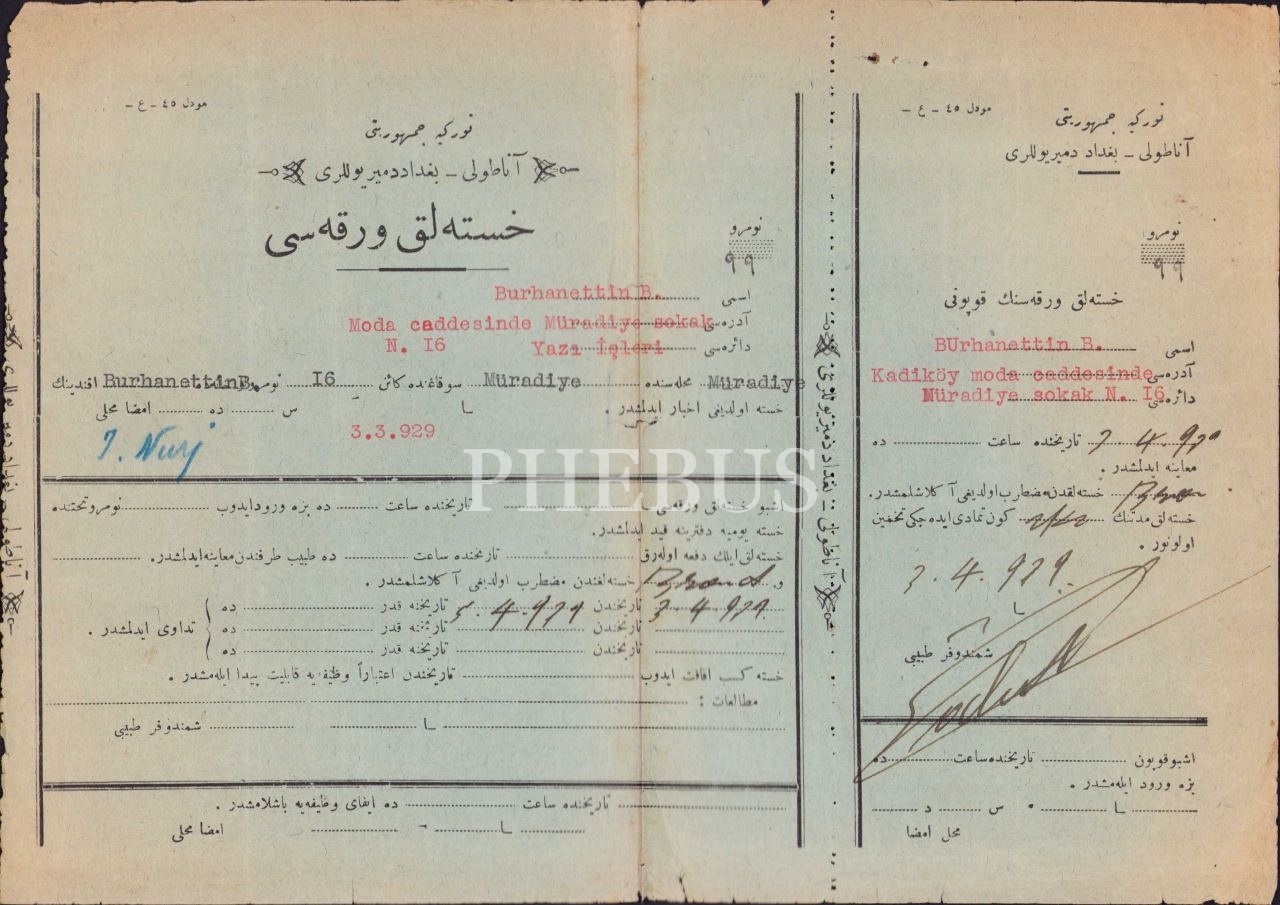 مودل ٤٥ - ع -
تورکیه جمهوریتی
آناطولی - بغداد دمیریوللری
خسته‌لق ورقه‌سی
نومرو
۹۹
اسمی Burhanettin B.
آدره‌سی Moda caddesinde Müradiye sokak
دائره‌سی N. I6 Yazı İşleri
Müradiye محله‌سنده Müradiye سوقاغنده کائن I6 نومرولو Burhanettin B. افندینك
خسته اولدیغی اخبار ایدلمشدر . سا س ده امضا محلی
3.3.929
اشبو خسته‌لق ورقه‌سی تاریخنده ساعت ده بزه ورود ایدوب نومرو تحتنده
خسته یومیه دفترینه قید ایدلمشدر.
خسته‌لق ایلك دفعه اوله‌رق تاریخنده ساعت ده طبیب طرفندن معاینه ایدلمشدر.
و خسته‌لغندن مضطرب اولدیغی آ کلاشلمشدر .
3.4.929 تاریخندن 5.4.929 تاریخنه قدر ده
تاریخندن تاریخنه قدر ده تداوی ایدلمشدر .
تاریخندن تاریخنه قدر ده
خسته کسب افاقت ایدوب تاریخندن اعتباراً وظیفه‌یه قابلیت پیدا ایله‌مشدر .
مطالعات :
سا شمندوفر طبیبی
تاریخنده ساعت ده ایفای وظیفه‌یه باشلامشدر .
سا امضا محلی
آناطولی - بغداد دمیریوللری
مودل ٤٥ - ع -
تورکیه جمهوریتی
آناطولی - بغداد دمیریوللری
نومرو
۹۹
خسته‌لق ورقه‌سنك قوپونی
اسمی BUrhanettin B.
آدره‌سی Kadiköy moda caddesinde
دائره‌سی Müradiye sokak N. I6
3.4.929 تاریخنده ساعت ده
معاینه ایدلمشدر .
خسته‌لقدن مضطرب اولدیغی آ کلاشلمشدر.
خسته‌لق مدتنك کون تمادی ایده جکی تخمین
اولونور .
3.4.929.
سا
شمندوفر طبیبی
اشبو قوپون تاریخنده ساعت ده
بزه ورود ایله‌مشدر .
سا س د
محل امضا
PHEBUS